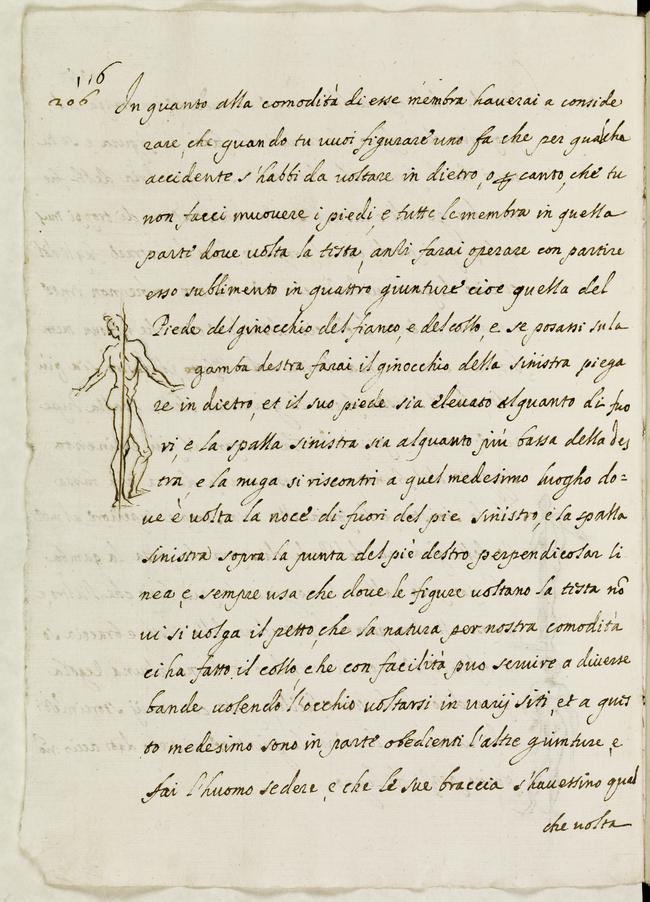 116
206 In quanto alla comodità di esse membra haverai a conside
rare, che quando tu vuoi figurare uno fa che per qualche
accidente s'habbi da voltare in dietro, o canto, che tu
non facci muovere i piedi, e tutte le membra in quella
parte dove volta la testa, anzi farai operare con partire
esso suolimento in quattro giunture cioe quella del
Piede del ginocchio del fianco, e del collo, e se posarsi su la
gamba destra farai il ginocchio della sinistra piega
re in dietro, et il suo piede sia elevato alquanto di fuo
ri, e la spalla sinistra sia alquanto più bassa della des
tra, e la nuga si riscontri a quel medesimo luogho do=
ue è volta la noce di fuori del pie sinistro, e la spalla
sinistra sopra la punta del piè destro perpendicolar li
nea, e sempre usa che dove le figure voltano la testa nõ
vi si volga il petto, che la natura per nostra comodità
ci ha fatto il collo, che con facilità puo servire a diverse
bande volendo l'occhio voltarsi in varij siti, et a ques
to medesimo sono in parte obedienti l'altre giunture, e
fai l'huomo sedere, e che le sue braccia s'havessino qual
che volta